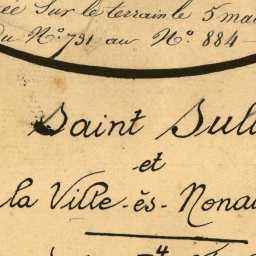 ée Sur le terrain le 5 mai
Du N° 791 au N° 884
Saint Sul
et
la Ville-ès-Nona
4